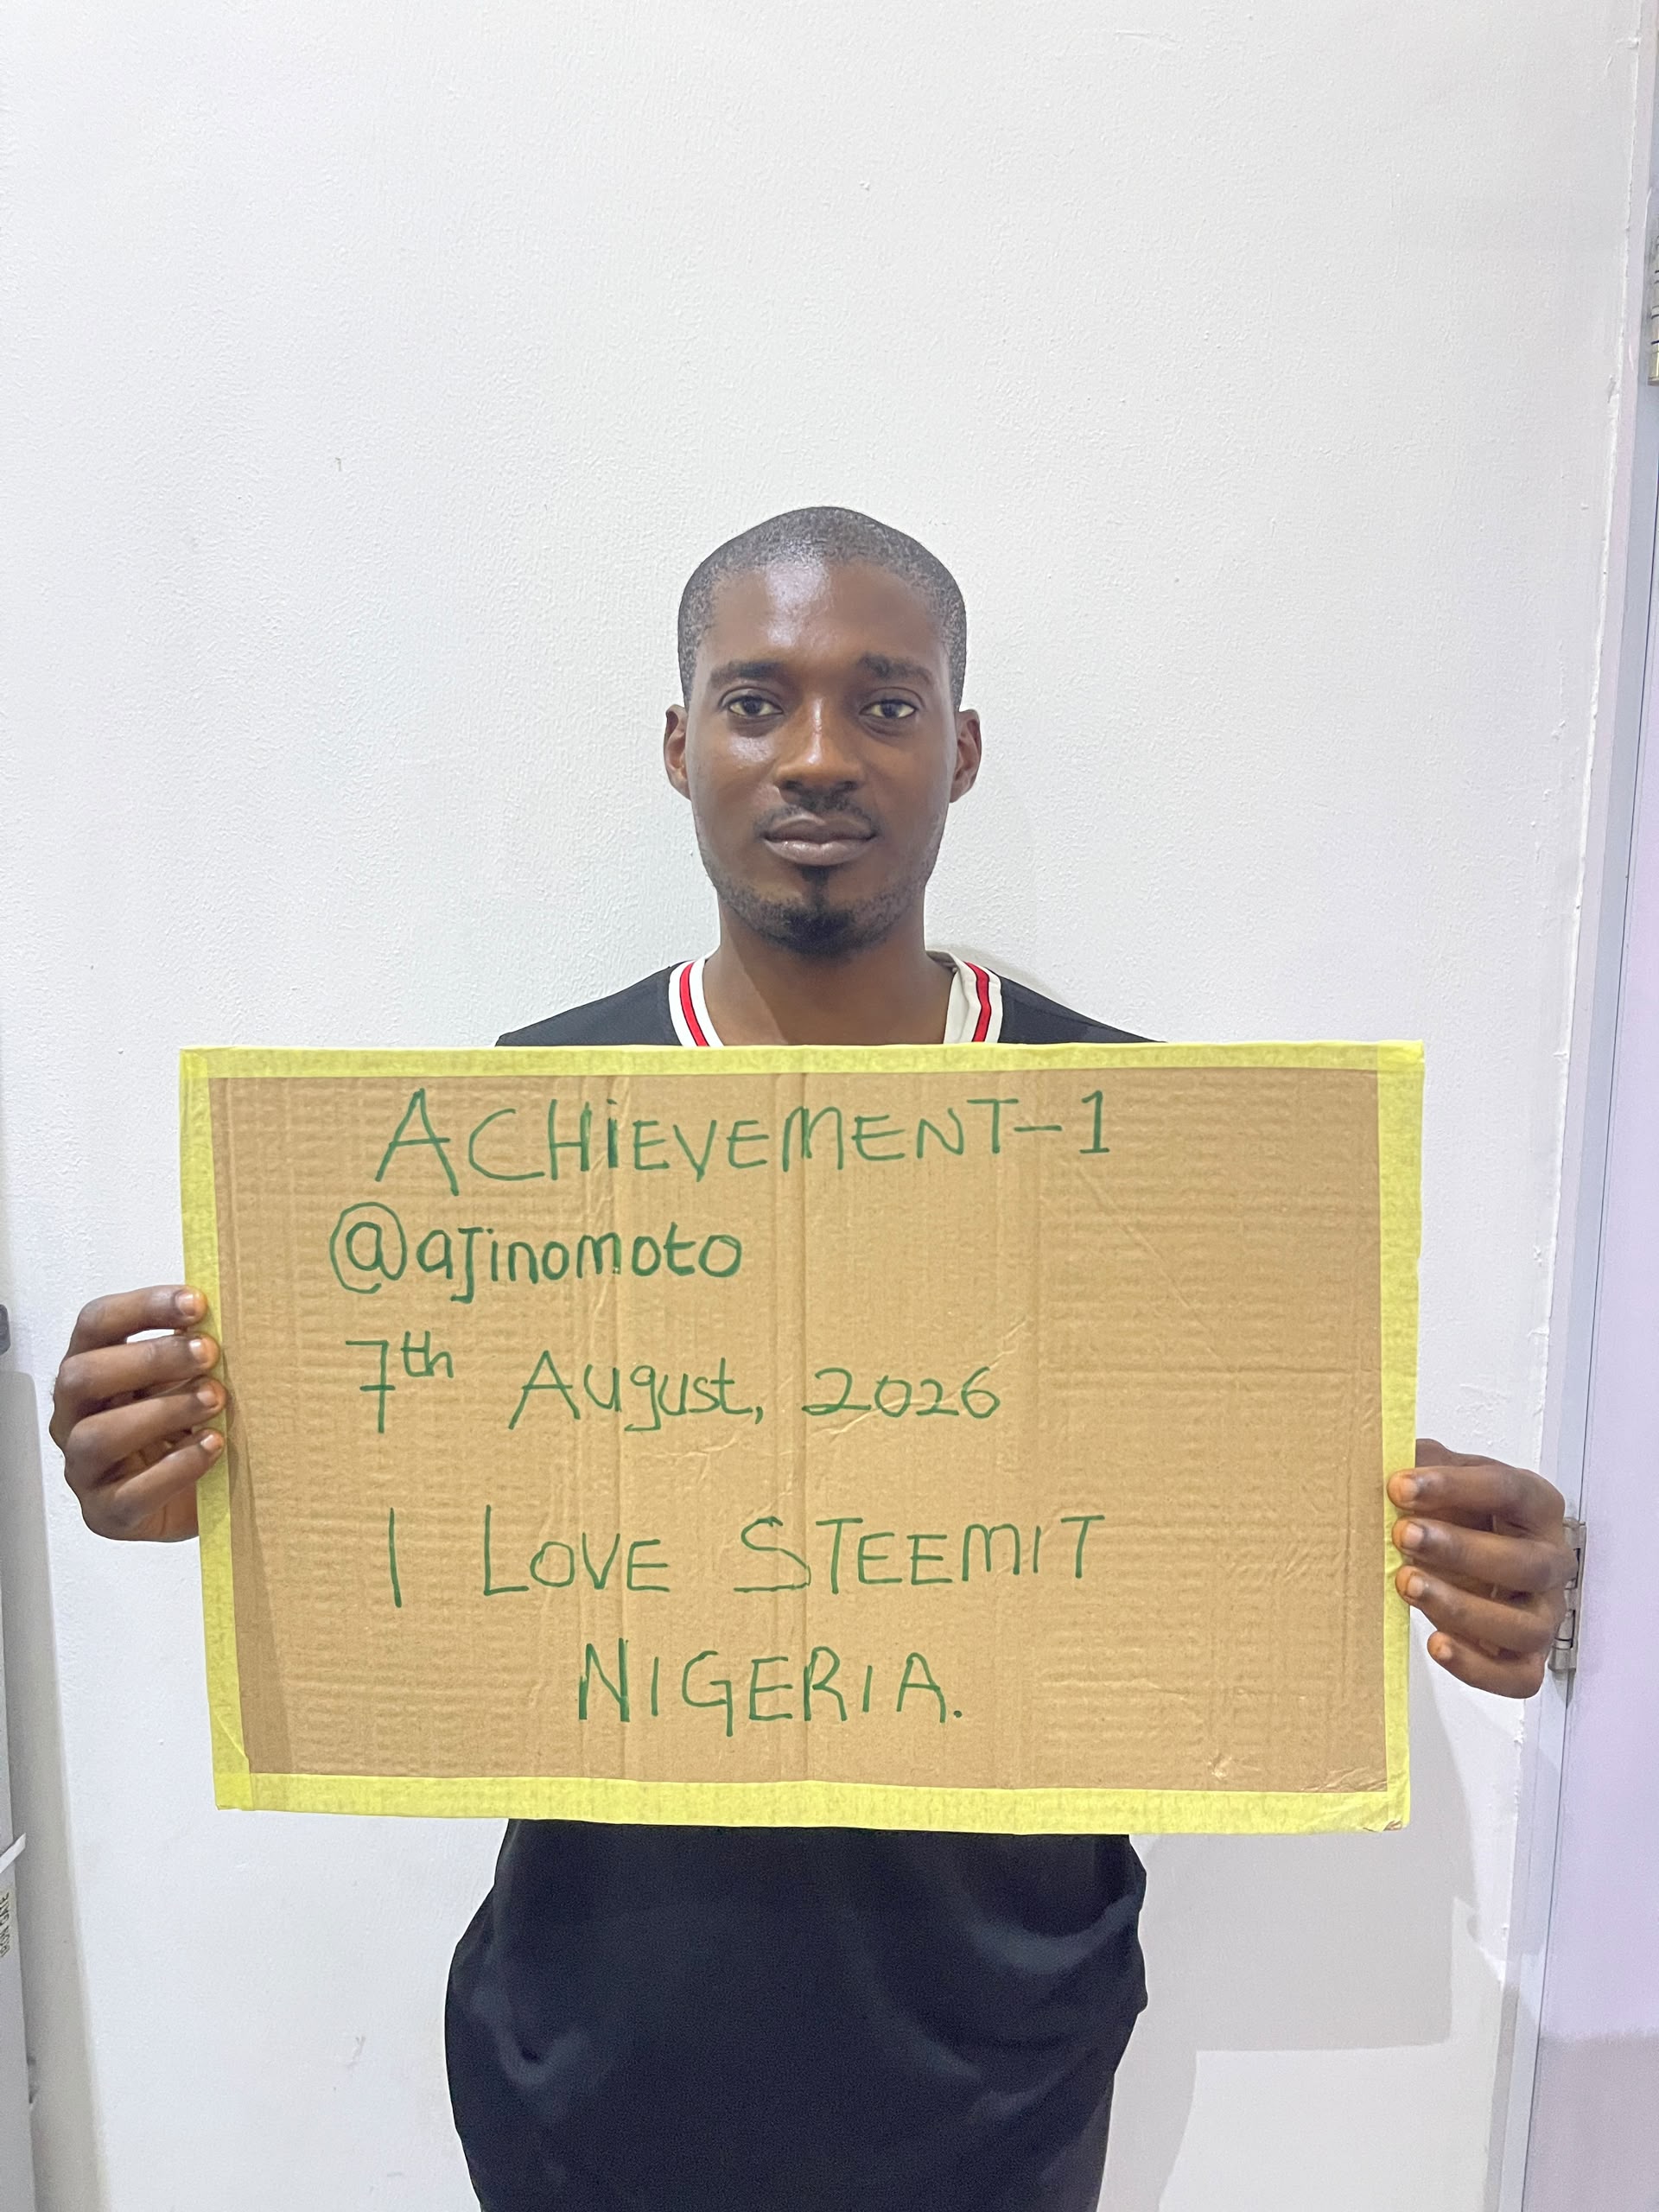 ACHiEVEMENT-1
@ajinomoto
7th August, 2026
I LOVE STEEMIT
NIGERIA.